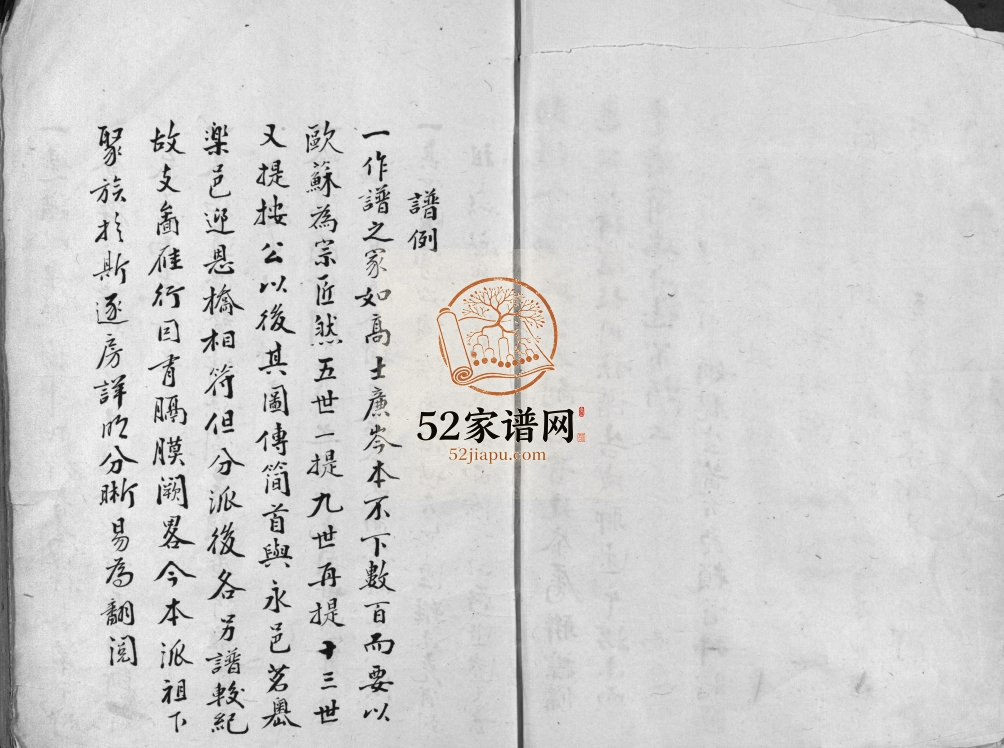 譜例
一作譜之家如高士廉岑本不下數百而要以
歐蘇為宗匠然五世一提九世再提十三世
又提按公以後其圖傳簡首與永邑茗嶴
樂邑迎恩橋相符但分派後各另譜較紀
故支啚雁行目有膈膜闕畧今本派祖下
聚族於斯逐房詳明分晰易為翻閱
52家谱网
52jiapu.com